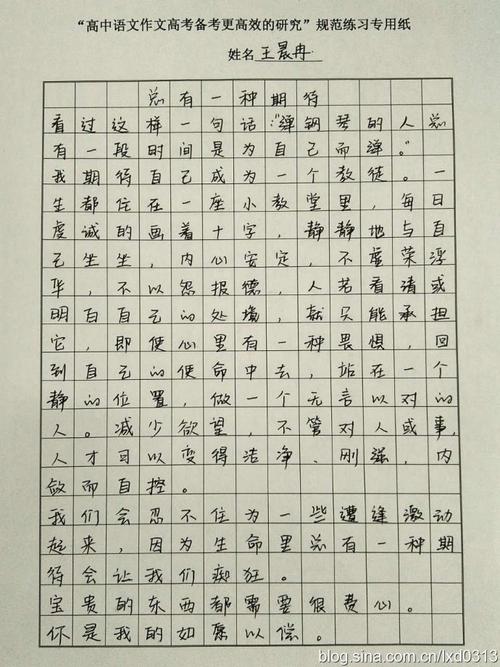 “高中语文作文高考备考更高效的研究”规范练习专用纸
姓名 王晨冉
总有一种期待
看过这样一句话：“弹钢琴的人总
有一段时间是为自己而弹。”
我期待自己成为一个教徒。一
生都住在一座小教堂里，每日
虔诚的画着十字，静静地与自
己坐坐，内心安定，不虚荣浮
华，不以怨报德，人若看清或
明白自己的处境，就只能承担
它，即使心里有一种畏惧，回
到自己的使命中去，站在一个
静的位置，做一个无言以对的
人。减少欲望，不管对人或事，
人才可以变得洁净、刚强，内
敛而自控。
我们会忍不住为一些遭逢激动
起来，因为生命里总有一种期
待会让我们痴狂。
宝贵的东西都需要很费心。
你是我的如愿以偿。
blog.sina.com.cn/lxd0313